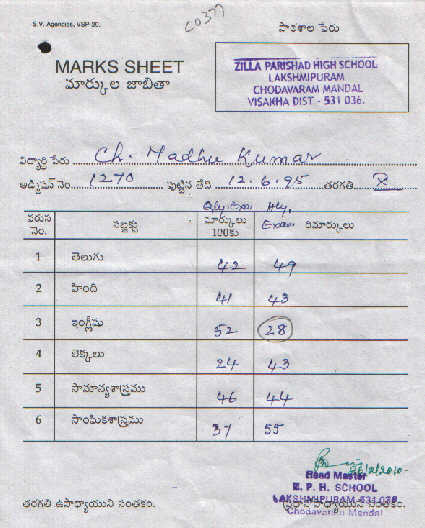 S.V. Agencies, VSP-20.
పాఠశాల పేరు
MARKS SHEET
మార్కుల జాబితా
ZILLA PARISHAD HIGH SCHOOL
LAKSHMIPURAM
CHODAVARAM MANDAL
VISAKHA DIST - 531 036.
విద్యార్థి పేరు Ch. Madhu Kumar
అడ్మిషన్ నెం. 1270 పుట్టిన తేది 12.6.95 తరగతి X
Hly.
వరుస నెం. సబ్జక్టు మార్కులు 100కు Exam రిమార్కులు
1 తెలుగు 42 49
2 హింది 41 43
3 ఇంగ్లీషు 52 28
4 లెక్కలు 24 43
5 సామాన్యశాస్త్రము 46 44
6 సాంఘికశాస్త్రము 37 55
Head Master
Z. P. H. SCHOOL
LAKSHMIPURAM-531 036
తరగతి ఉపాధ్యాయుని సంతకం. సంతకం.
Chodavaram Mandal